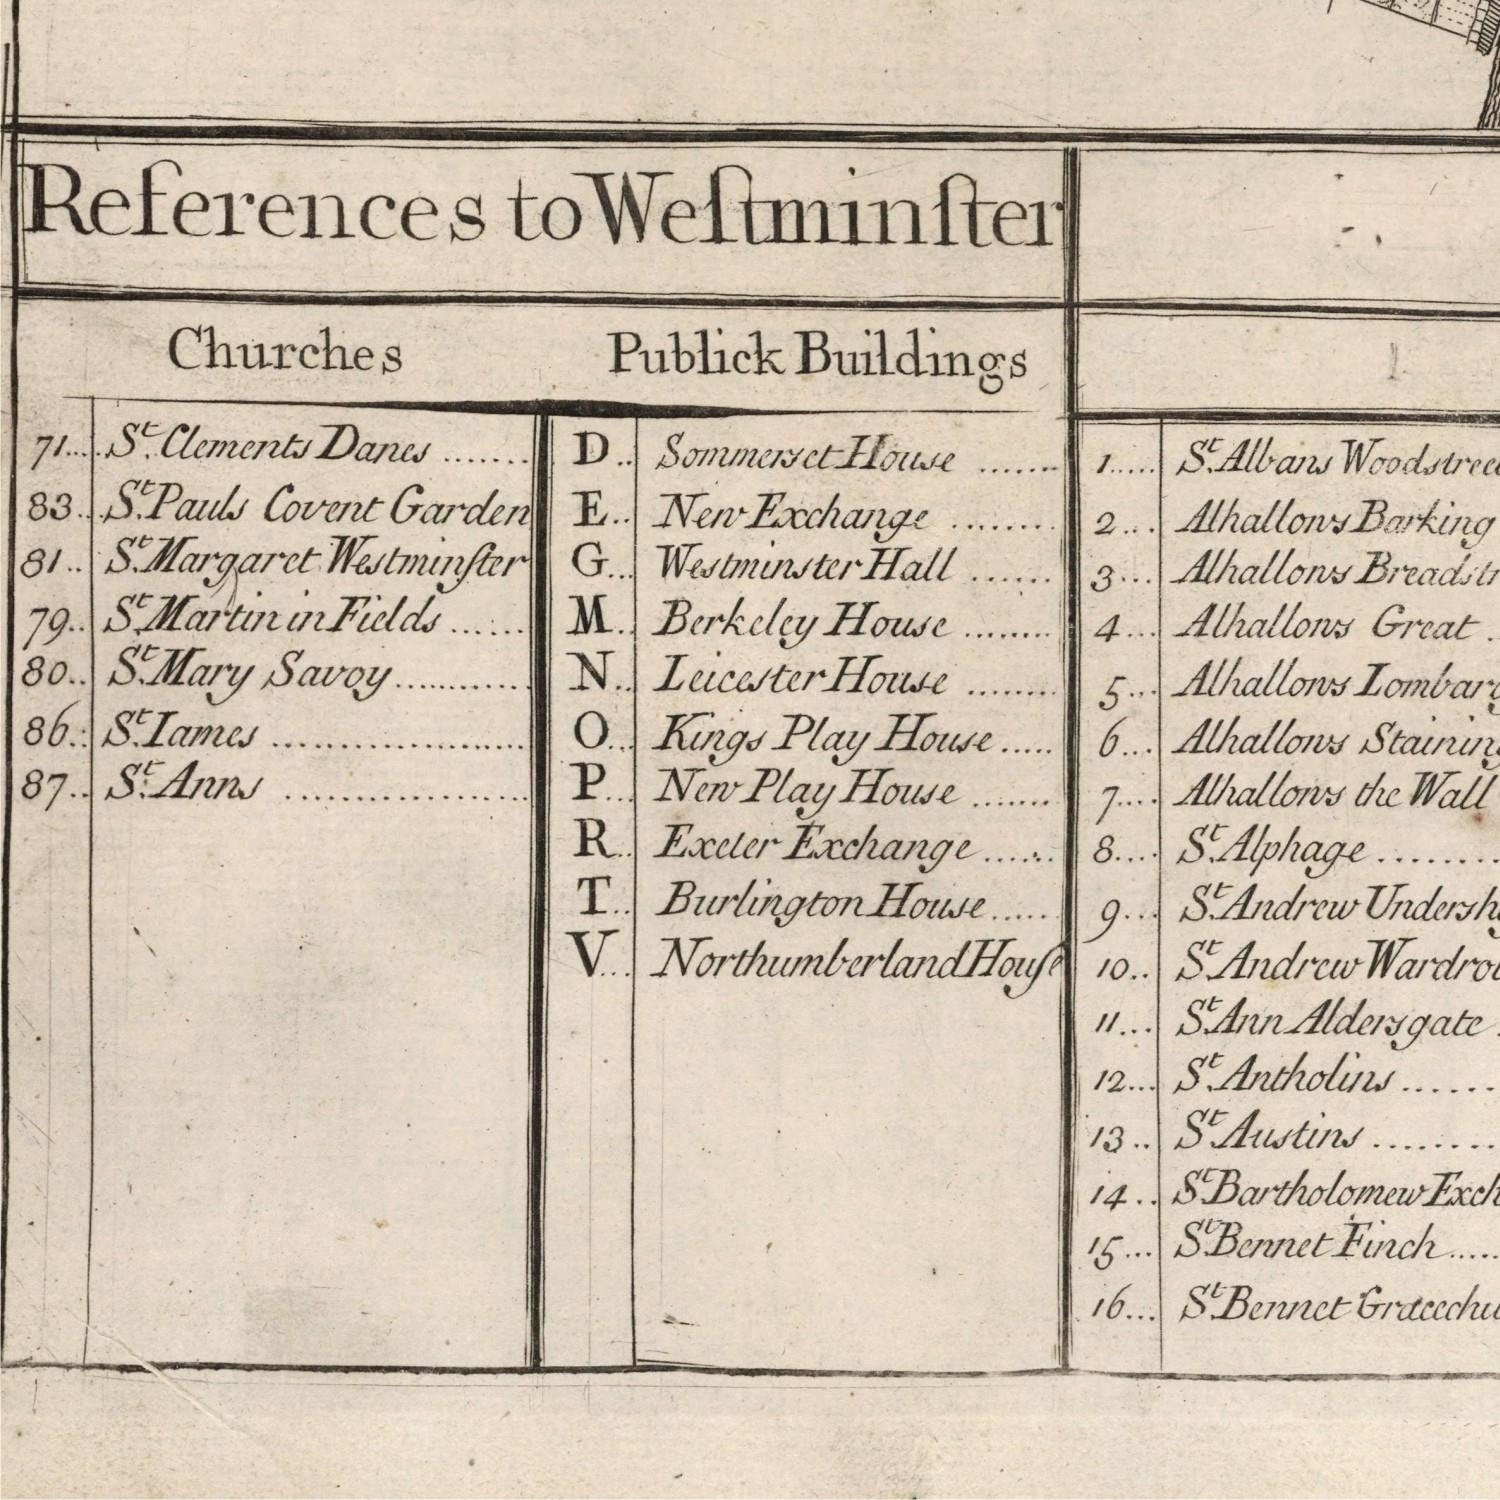 References to Weſtminſter
Churches
71.... St. Clements Danes .......
83... St. Pauls Covent Garden
81.. St. Margaret Westminſter
79.. St. Martin in Fields ......
80.. St. Mary Savoy............
86.. St. Iames ......................
87.. St. Anns ...................
Publick Buildings
D.. Sommerset House .......
E.. New Exchange ........
G... Westminster Hall ......
M.. Berkeley House ........
N.. Leicester House ........
O... Kings Play House .....
P... New Play House .......
R.. Exeter Exchange ......
T.. Burlington House.....
V... Northumberland Houſe
1..... St. Albans
2... Alhallows Barking
3... Alhallows
4... Alhallows Great .
5... Alhallows
6... Alhallows
7.... Alhallows the Wall
8.... St. Alphage ........
9... St. Andrew
10.. St. Andrew
11... St. Ann Aldersgate .
12... St. Antholins ......
13.. St. Austins ........
14.. St. Bartholomew
15... St. Bennet Finch .....
16... St. Bennet